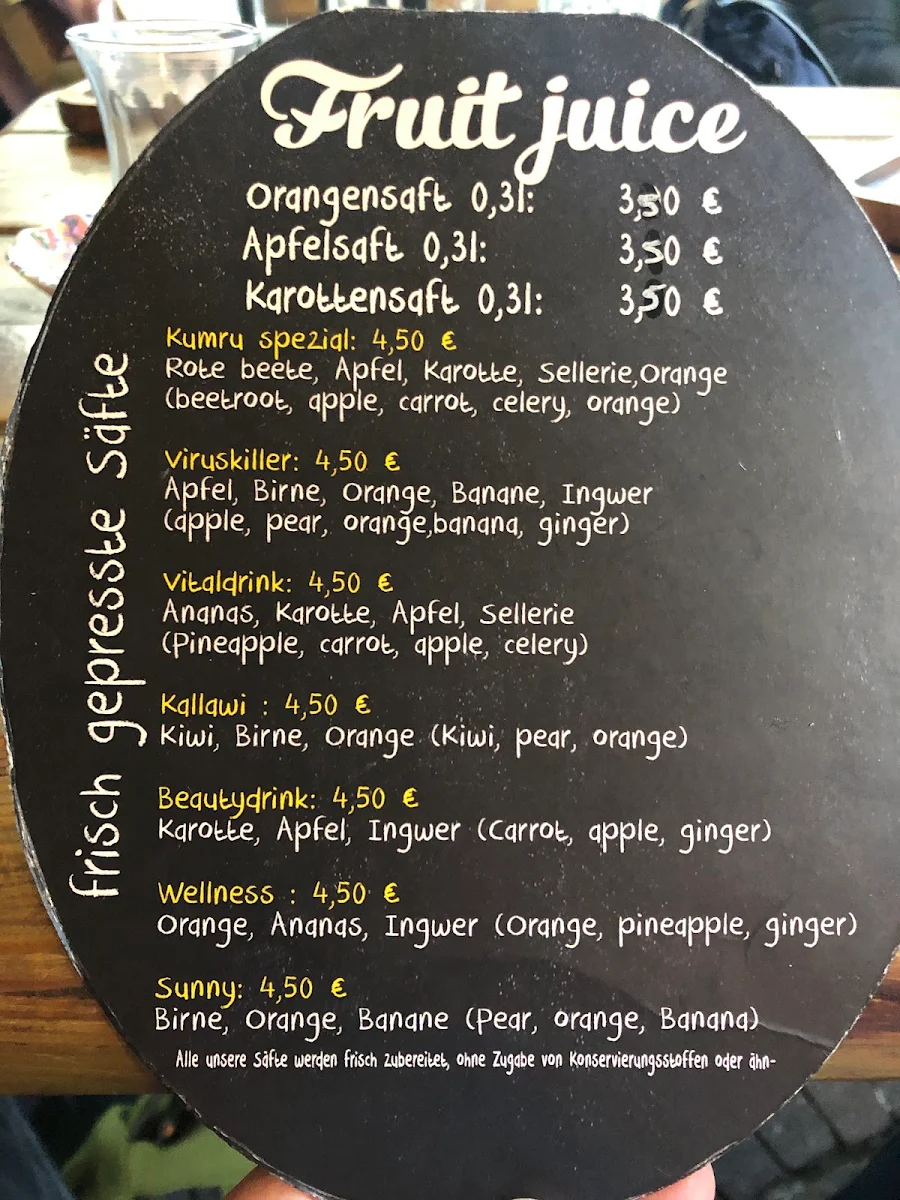 Fruit juice
Orangensaft 0,3l: 3,50 €
Apfelsaft 0,3l: 3,50 €
Karottensaft 0,3l: 3,50 €
frisch gepresste Säfte
Kumru spezial: 4,50 €
Rote beete, Apfel, Karotte, Sellerie,Orange
(beetroot, apple, carrot, celery, orange)
Viruskiller: 4,50 €
Apfel, Birne, Orange, Banane, Ingwer
(apple, pear, orange,banana, ginger)
Vitaldrink: 4,50 €
Ananas, Karotte, Apfel, Sellerie
(Pineapple, carrot, apple, celery)
Kallawi : 4,50 €
Kiwi, Birne, Orange (Kiwi, pear, orange)
Beautydrink: 4,50 €
Karotte, Apfel, Ingwer (Carrot, apple, ginger)
Wellness : 4,50 €
Orange, Ananas, Ingwer (Orange, pineapple, ginger)
Sunny: 4,50 €
Birne, Orange, Banane (Pear, orange, Banana)
Alle unsere Säfte werden frisch zubereitet, ohne Zugabe von Konservierungsstoffen oder ähn-